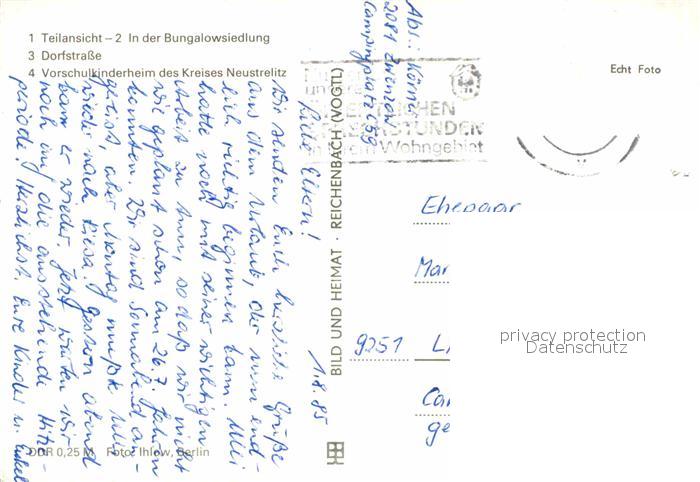 1 Teilansicht – 2 In der Bungalowsiedlung
3 Dorfstraße
4 Vorschulkinderheim des Kreises Neustrelitz
Echt Foto
Abs.: Körner
2081
Campingplatz C 59
STUNDEN
Wohngebiet
1.8.85
Liebe Eltern!
Wir senden Euch herzliche Grüße
aus dem Urlaub, der nun end-
lich richtig beginnen kann. Ulli
hatte noch mit seiner wichtigen
Arbeit zu tun, so daß wir nicht
wie geplant schon am 26.7. fahren
konnten. Wir sind Sonnabend an-
gereist, aber Montag mußte Ulli
wieder nach Riesa. Gestern abend
kam er wieder. Jetzt warten wir
noch auf die ausstehende Hitze-
periode! Herzlichst Eure Kinder u. Enkel
BILD UND HEIMAT · REICHENBACH (VOGTL)
Ehepaar
Mar
9251 Li
Ca
ge
privacy protection
Datenschutz
DDR 0,25 M Foto: Ihlow, Berlin